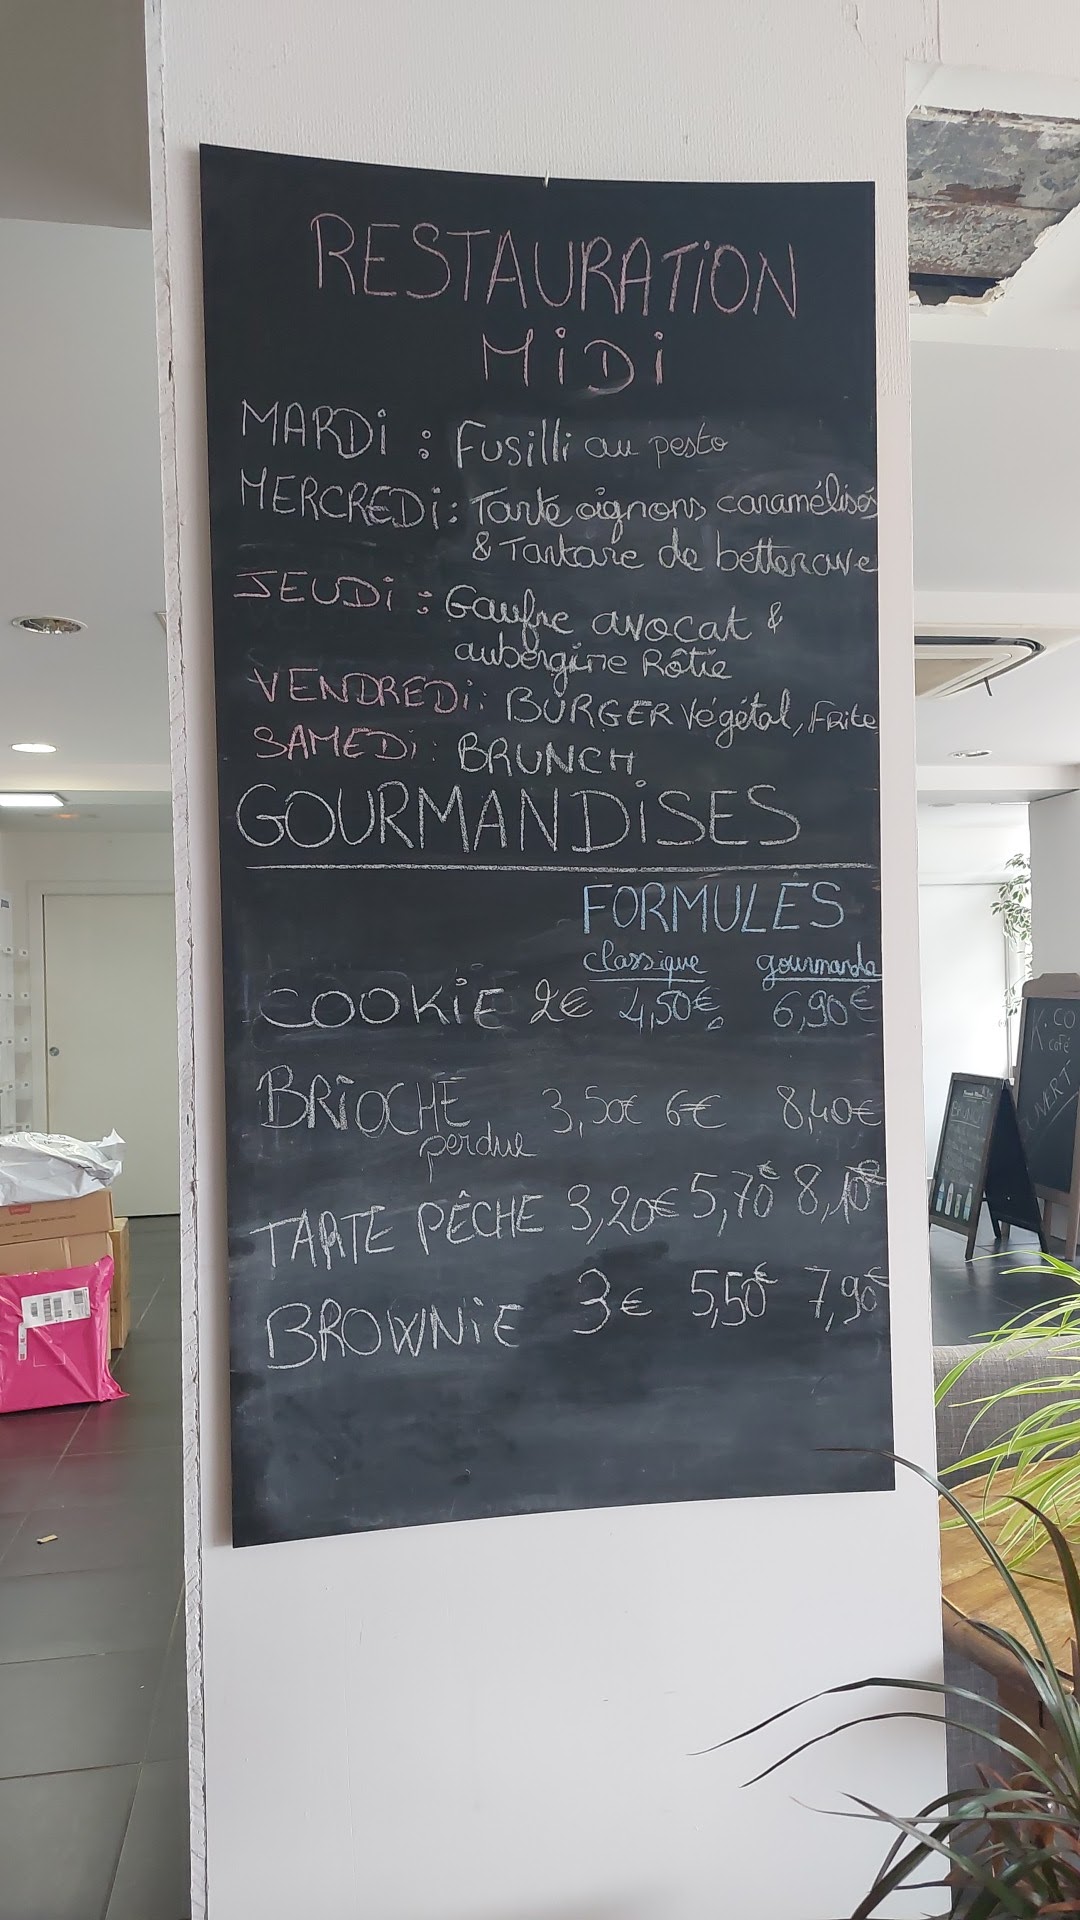 RESTAURATION
MIDI
MARDI : Fusilli au pesto
MERCREDI : Tarte oignons caramélisés
& Tartare de betterave
JEUDI : Gaufre avocat &
aubergine Rôtie
VENDREDI : BURGER végétal, Frite
SAMEDI : BRUNCH
GOURMANDISES
FORMULES
classique gourmande
COOKIE 2€ 4,50€ 6,90€
BRIOCHE 3,50€ 6€ 8,40€
perdue
TARTE PÊCHE 3,20€ 5,70€ 8,10€
BROWNIE 3€ 5,50€ 7,90€
K.CO
café
BRUNCH